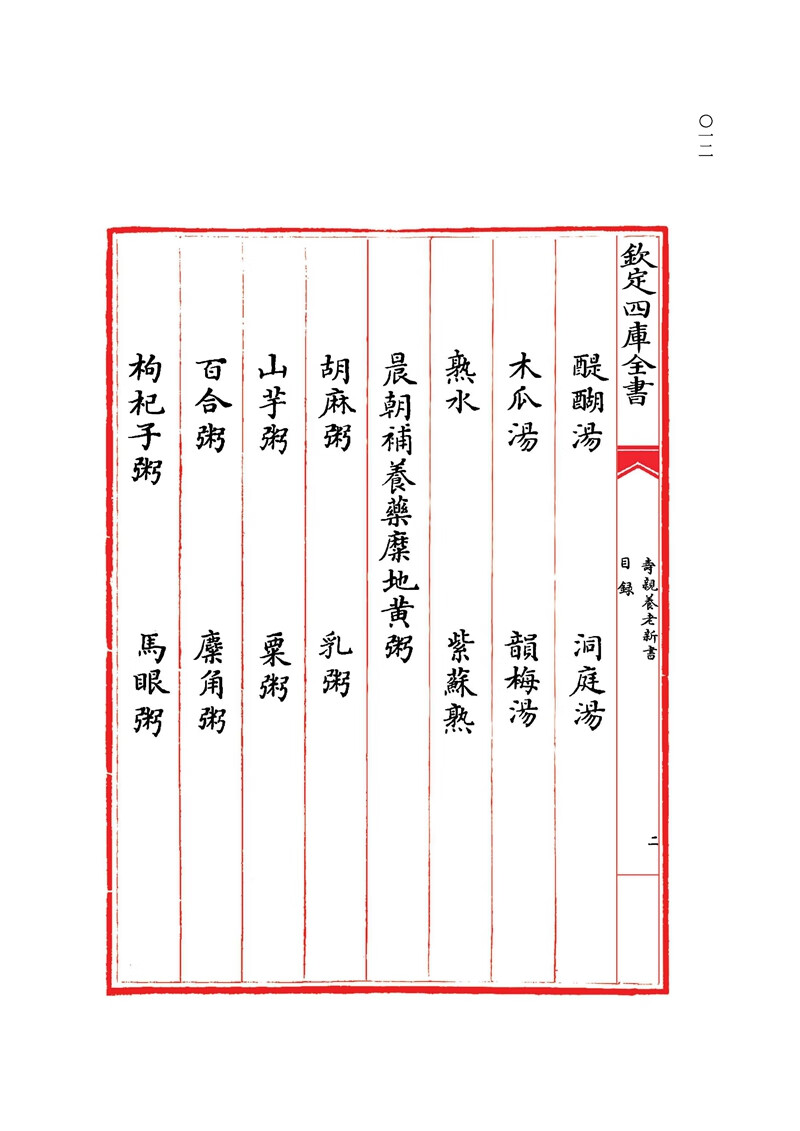 〇一二
欽定四庫全書
壽親養老新書
目録
二
醍醐湯 洞庭湯
木瓜湯 韻梅湯
熟水 紫蘇熟
晨朝補養藥糜地黄粥
胡麻粥 乳粥
山芋粥 粟粥
百合粥 麋角粥
枸杞子粥 馬眼粥